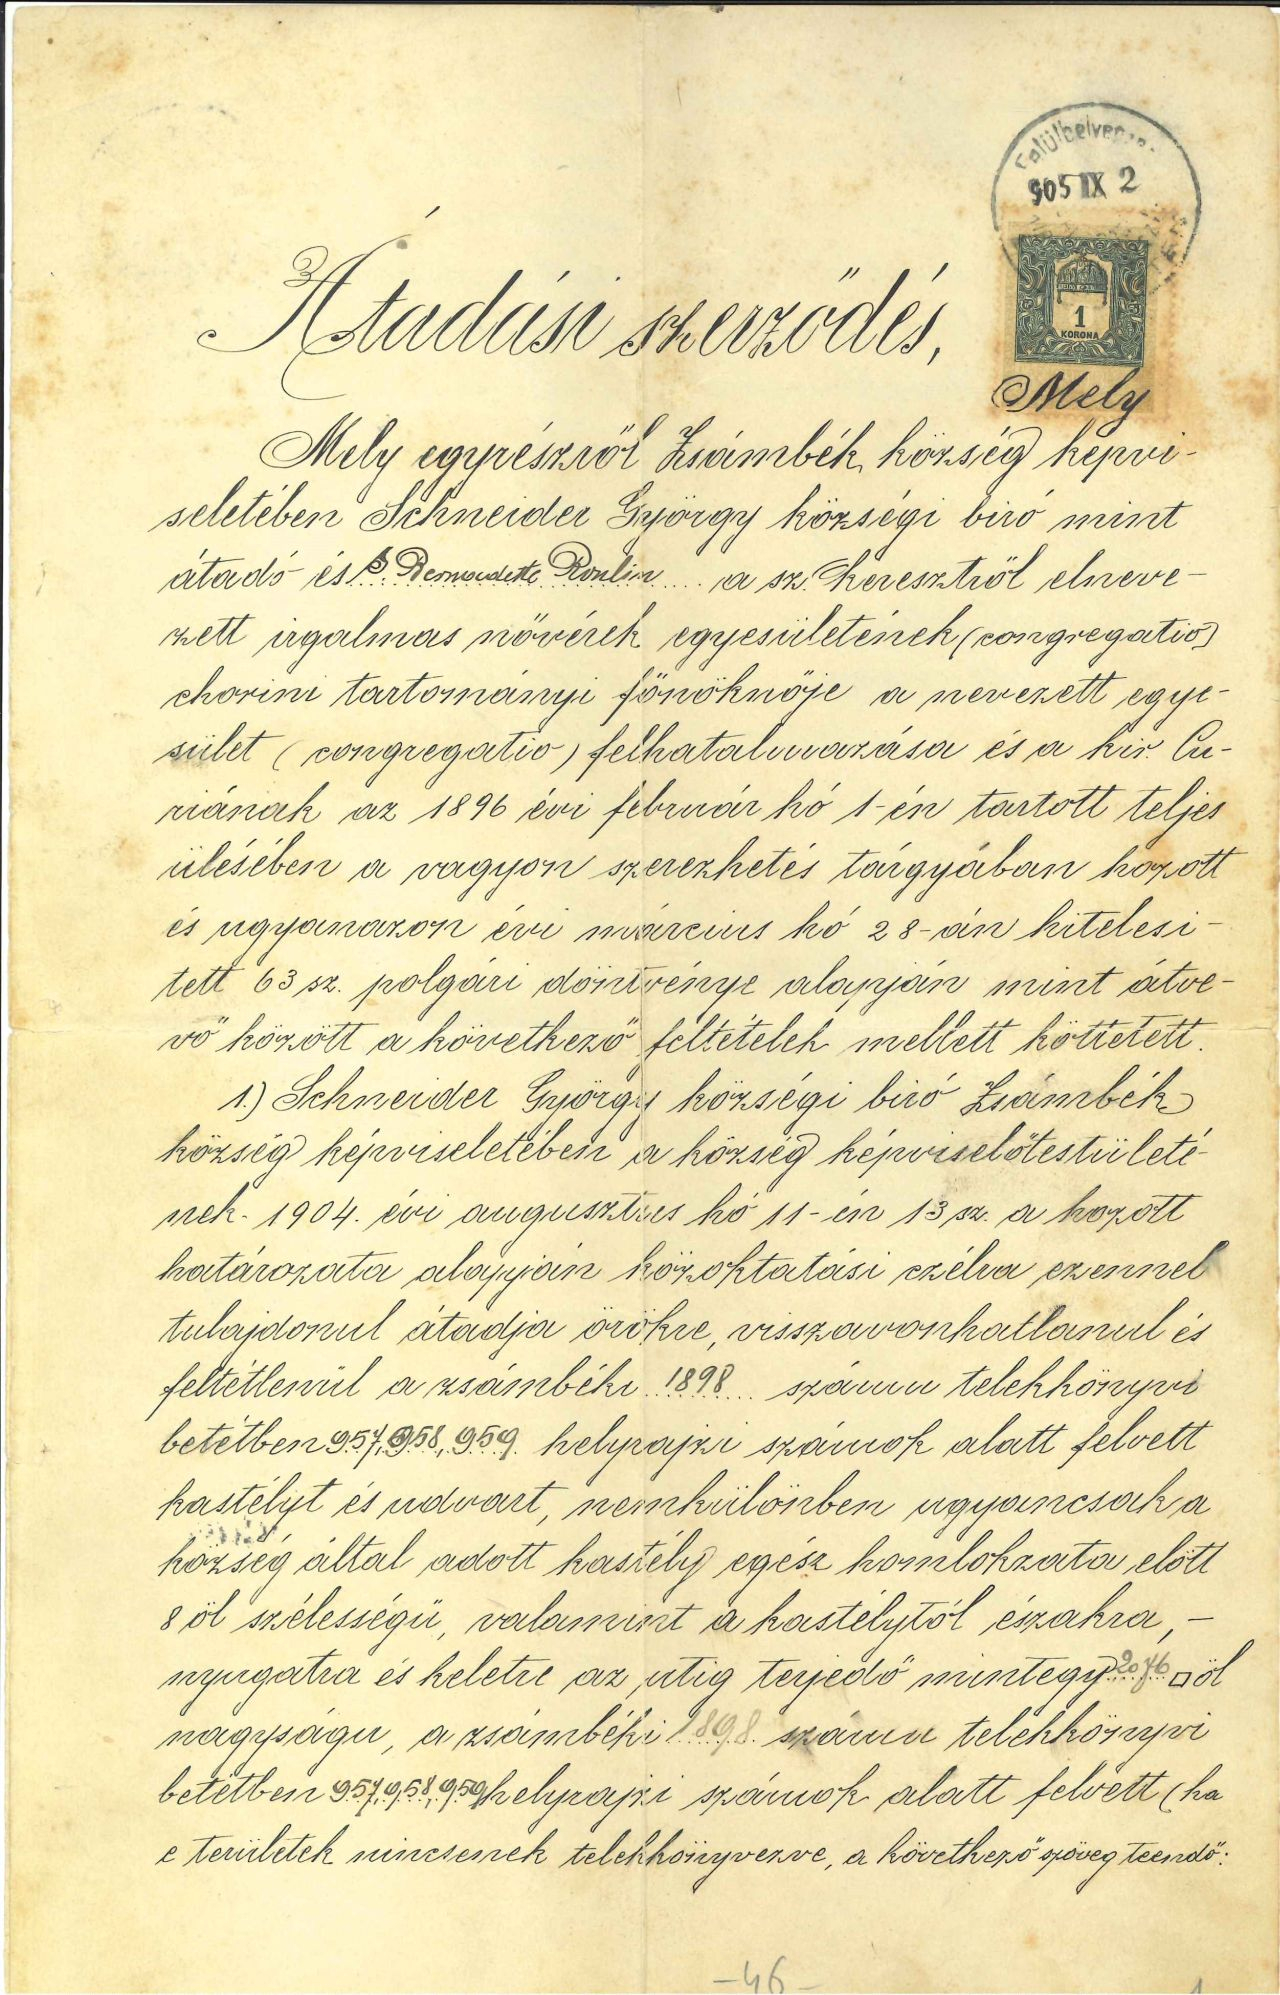 905 IX 2
1
KORONA
Átadási szerződés,
Mely
Mely egyrészről Zsámbék község képvi-
seletében Schneider György községi biró mint
átadó és S. Bernadette Roulin a sz. keresztről elneve-
zett irgalmas nővérek egyesületének (congregatio)
chorini tartományi főnöknője a nevezett egye-
sület (congregatio) felhatalmazása és a kir. Cu-
riának az 1896 évi február hó 1-én tartott teljes
ülésében a vagyon szerezhetés tárgyában hozott
és ugyanazon évi március hó 28-án hitelesi-
tett 63 sz. polgári döntvénye alapján mint átve-
vő között a következő feltételek mellett köttetett.
1.) Schneider György községi biró Zsámbék
község képviseletében a község képviselőtestületé-
nek 1904. évi augusztus hó 11-én 13 sz. a hozott
határozata alapján közoktatási czélra ezennel
tulajdonul átadja örökre, visszavonhatlanul és
feltétlenül a zsámbéki 1898 számu telekkönyvi
betétben 957, 958, 959 helyrajzi számok alatt felvett
kastélyt és udvart, nemkülönben ugyancsak a
község által adott kastély egész homlokzata előtt
8 öl szélességü, valamint a kastélytól északra, -
nyugatra és keletre az utig terjedő mintegy 2076 □ öl
nagyságu, a zsámbéki 1898 számu telekkönyvi
betétben 957, 958, 959 helyrajzi számok alatt felvett (ha
e területek nincsenek telekkönyvezve, a következő szöveg teendő:
-46-
1